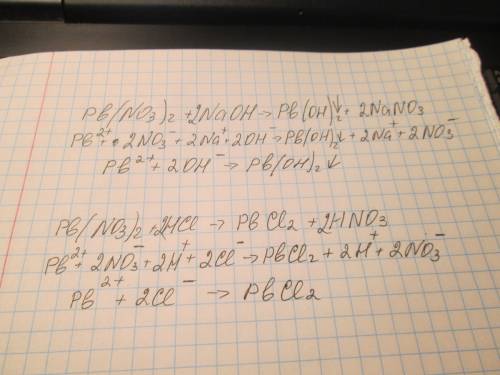 Pb(NO₃)₂ + 2NaOH → Pb(OH)₂↓ + 2NaNO₃
Pb²⁺ + 2NO₃⁻ + 2Na⁺ + 2OH⁻ → Pb(OH)₂↓ + 2Na⁺ + 2NO₃⁻
Pb²⁺ + 2OH⁻ → Pb(OH)₂↓
Pb(NO₃)₂ + 2HCl → PbCl₂ + 2HNO₃
Pb²⁺ + 2NO₃⁻ + 2H⁺ + 2Cl⁻ → PbCl₂ + 2H⁺ + 2NO₃⁻
Pb²⁺ + 2Cl⁻ → PbCl₂